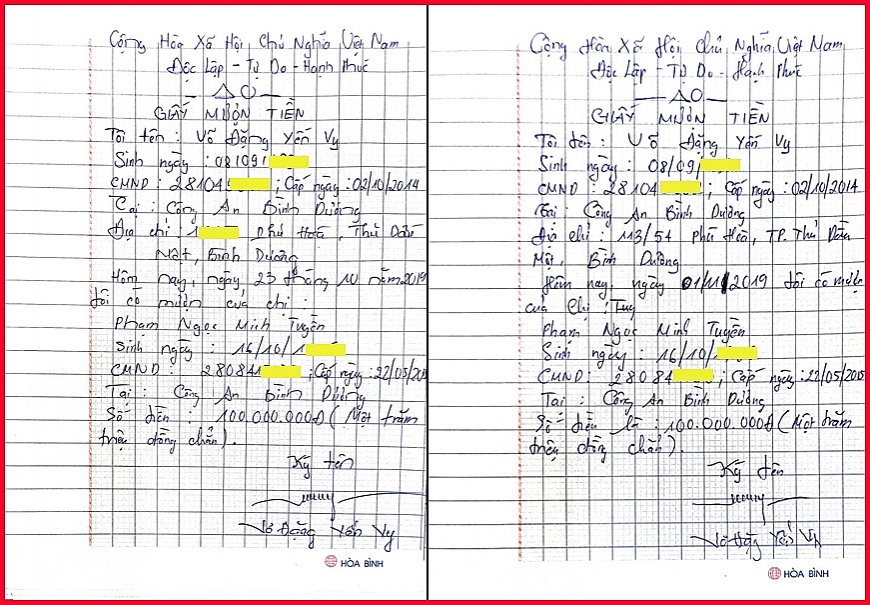 Cộng Hòa Xã Hội Chủ Nghĩa Việt Nam
Độc Lập - Tự Do - Hạnh Phúc
GIẤY MƯỢN TIỀN
Tôi tên : Võ Đặng Yến Vy
Sinh ngày : 08/09/
CMND : 28104 ; Cấp ngày : 02/10/2014
Tại : Công An Bình Dương
Địa chỉ : 1 Phú Hoà , Thủ Dầu
Một, Bình Dương
Hôm nay, ngày 23 tháng 10 năm 2019
tôi có mượn của chị :
Phạm Ngọc Minh Tuyền
Sinh ngày : 16/10/1
CMND : 280841 ; Cấp ngày : 22/05/2015
Tại : Công An Bình Dương
Số tiền : 100.000.000Đ ( Một trăm
triệu đồng chẵn ).
Ký tên
Võ Đặng Yến Vy
HÒA BÌNH
Cộng Hòa Xã Hội Chủ Nghĩa Việt Nam
Độc Lập - Tự Do - Hạnh Phúc
GIẤY MƯỢN TIỀN
Tôi tên : Võ Đặng Yến Vy
Sinh ngày : 08/09/
CMND : 28104 ; Cấp ngày : 02/10/2014
Tại : Công An Bình Dương
Địa chỉ : 113/54 Phú Hòa, TP. Thủ Dầu
Một, Bình Dương
Hôm nay, ngày 01/11/2019 tôi có mượn
của Chị :
Phạm Ngọc Minh Tuyền
Sinh ngày : 16/10/
CMND : 28084 ; Cấp ngày : 22/05/2015
Tại : Công An Bình Dương
Số tiền là : 100.000.000Đ ( Một trăm
triệu đồng chẵn ).
Ký tên
Võ Đặng Yến Vy
HÒA BÌNH